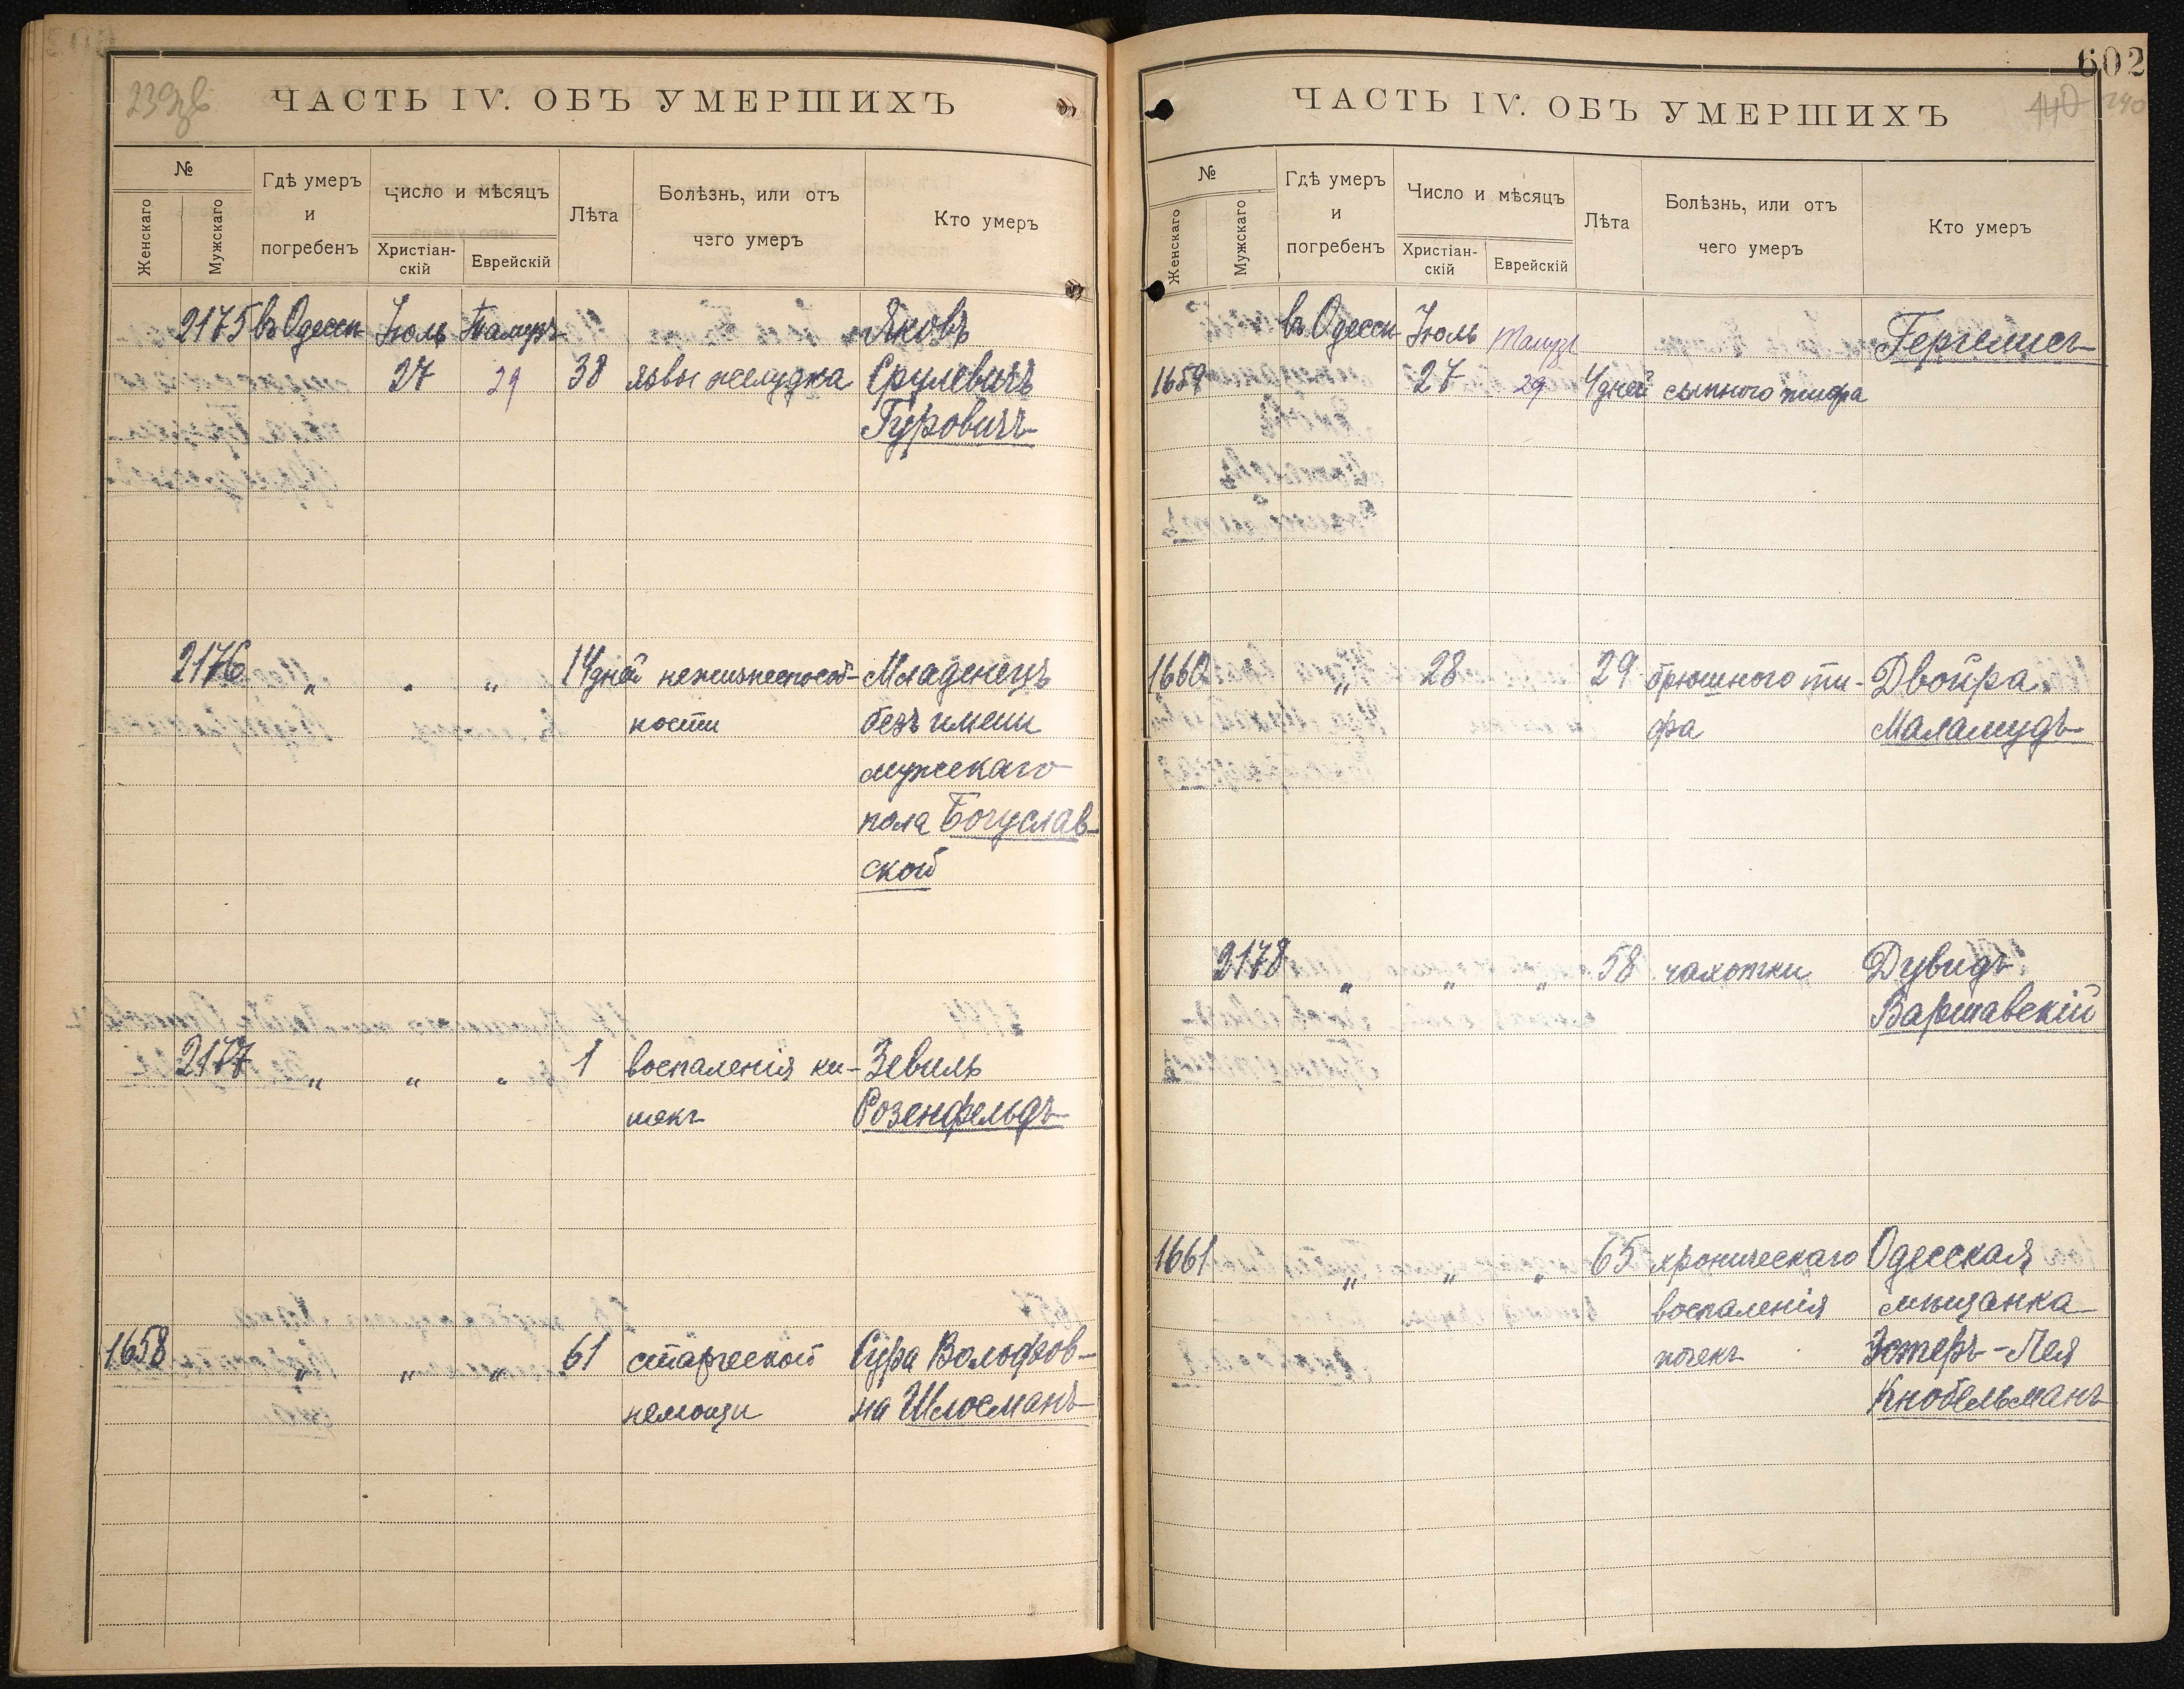 239об
ЧАСТЬ IV. ОБЪ УМЕРШИХЪ
№
Женскаго
Мужскаго
Гдѣ умеръ
и
погребенъ
Число и мѣсяцъ
Христіан-
скій
Еврейскій
Лѣта
Болѣзнь, или отъ
чего умеръ
Кто умеръ
2175 въ Одессѣ Іюль Тамузъ Яковъ
27 29 38 язвы желудка Срулевичъ
Гуровичъ
2176 „ „ „ 14 дней нежизнеспособ- Младенецъ
ности безъ имени
мужскаго
пола Богуслав-
ской
2177 „ „ „ 1 воспаленія ки- Зевиль
шекъ Розенфельдъ
1658 „ „ „ 61 старческой Сура Вольфов-
немощи на Шлосманъ
602
ЧАСТЬ IV. ОБЪ УМЕРШИХЪ
440 240
№
Женскаго
Мужскаго
Гдѣ умеръ
и
погребенъ
Число и мѣсяцъ
Христіан-
скій
Еврейскій
Лѣта
Болѣзнь, или отъ
чего умеръ
Кто умеръ
въ Одессѣ Іюль Тамузъ
1659 27 29 4 дней сыпного тифа
1660 „ 28 29 брюшного ти- Двойра
фа Маламудъ
2178 „ „ „ 58 чахотки Дувидъ
Варшавскій
1661 „ „ „ 65 хроническаго Одесская
воспаленія мѣщанка
почекъ Эстеръ-Лея
Кнобельманъ